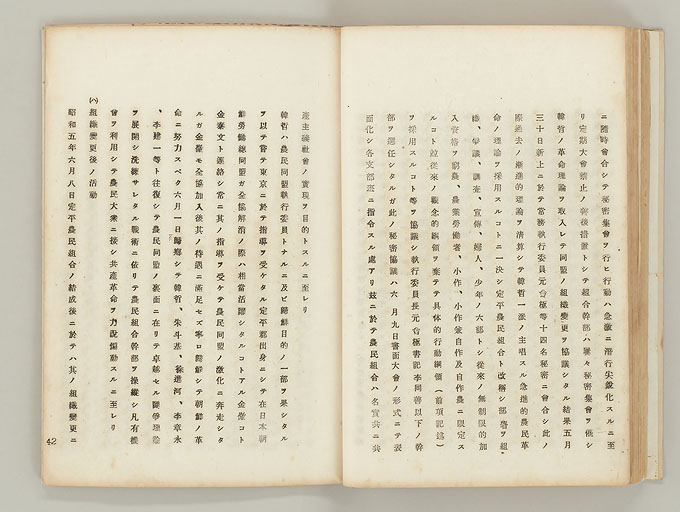 ニ隨時會合シテ秘密集會ヲ行ヒ行動ハ急激ニ潜行尖鋭化スルニ至
リ定期大會禁止ノ善後措置トシテ組合幹部ハ屢々秘密集會ヲ催シ
韓哲ノ革命理論ヲ取入レテ同盟ノ組織變更ヲ協議シタル結果五月
三十日新上ニ於テ常務執行委員元會極等十四名秘密ニ會合シ此ノ
際過去ノ漸進的理論ヲ清算シテ韓哲一派ノ主唱スル急進的農民革
命ノ理論ヲ採用スルコトニ一決シ定平農民組合ト改稱シ部署ヲ組
織、爭議、調査、宣傳、婦人、少年ノ六部トシ從來ノ無制限的加
入資格ヲ貧農、農業勞働者、小作、小作兼自作及自作農ニ限定ス
ルコト竝從來ノ觀念的綱領ヲ棄テテ具体的行動綱領(前項記述)
ヲ採用スルコト等ヲ協議シ執行委員長元會極書記李同善以下ノ幹
部ヲ選任シタルガ此ノ秘密協議ハ六月九日書面大會ノ形式ニテ表
面化シ各支部班ニ指令スル處アリ茲ニ於テ農民組合ハ名實共ニ共
產主義社會ノ實現ヲ目的トスルニ至レリ
韓哲ハ農民同盟執行委員トナルニ及ビ歸鮮目的ノ一部ヲ果シタル
ヲ以テ嘗テ東京ニ於テ指導ヲ受ケタル定平郡出身ニシテ在日本朝
鮮勞働總同盟ガ全協解消ノ際ハ相當活躍シタルコトアル金
金 文ト連絡シ常ニ其ノ指導ヲ受ケテ農民同盟ノ激化ニ奔走シタ
ルガ金 モ全協加入後其ノ待遇ニ滿足セズ寧ロ歸鮮シテ朝鮮ノ革
命ニ努力スベク六月一日歸鄉シテ韓哲、朱斗基、徐進河、李章永
、李建一等ト往復シテ農民同盟ノ裏面ニ在リテ卓越セル鬪爭理論
ヲ展開シ洗練サレタル戰術ニ依リテ農民組合幹部ヲ操縱シ凡有機
會ヲ利用シテ農民大衆ニ接シ共產革命ヲ力說煽動スルニ至レリ
(ハ)組織變更後ノ活動
昭和五年六月八日定平農民組合ノ結成後ニ於テハ其ノ組織變更ニ
42